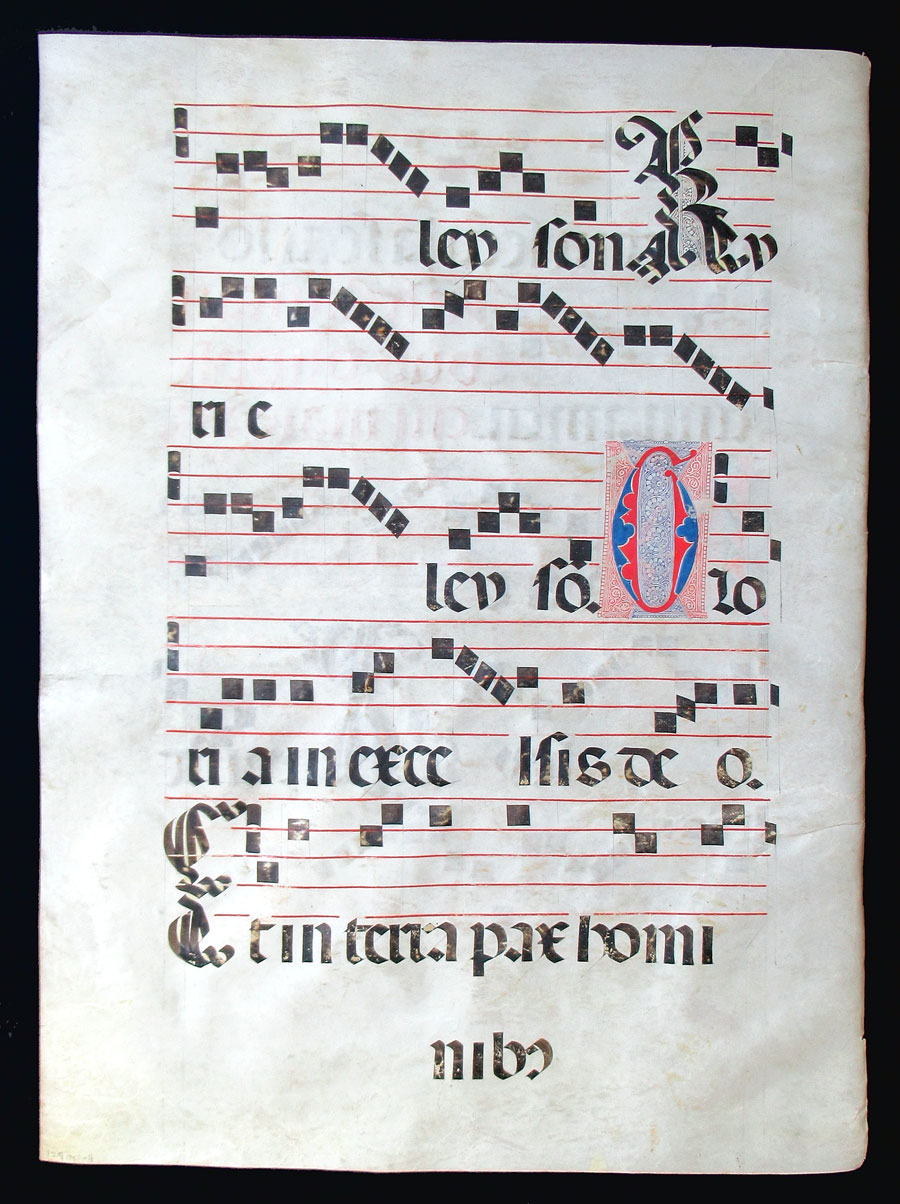 ley son. Ky
ri e
ley sō. Glo
ri a in exce lsis de o.
Et in terra pax homi
nibꝰ